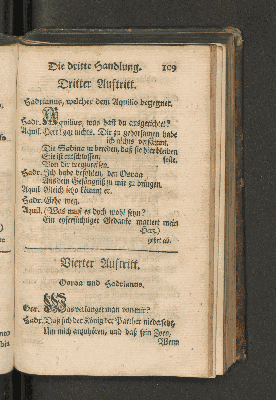 Die dritte Handlung. 109
Dritter Auftritt.
Hadrianus, welcher dem Aquilio begegnet.
Hadr. Aquilius, was hast du ausgerichtet?
Aquil. Herr! gar nichts. Dir zu gehorsamen habe
ich nichts versäumt,
Die Sabina zu bereden, daß sie hier bleiben
Sie ist entschlossen, solle.
Von dir wegzureisen.
Hadr. Ich habe befohlen, den Osroa
Aus dem Gefängniß zu mir zu bringen.
Aquil. Gleich kommt er.
Hadr. Gehe weg.
Aquil. (Was muß es doch wohl seyn?
Ein eyfersüchtiger Gedanke martert mein
Herz.)
gehet ab.
Vierter Auftritt.
Osroa und Hadrianus.
Osr. Was verlanget man von mir?
Hadr. Daß sich der König der Parther niedersetze,
Um mich anzuhören, und daß sein Zorn,
Wenn